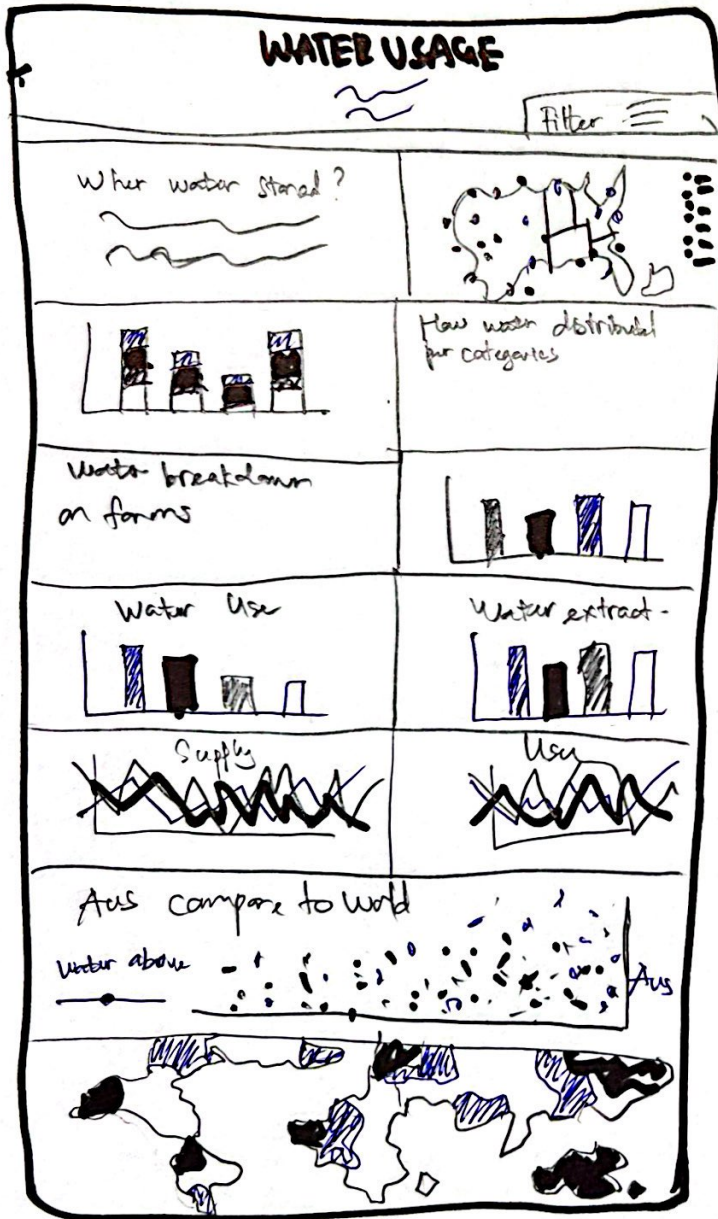 WATER USAGE
Filter
Wher water stored?
How water distributed
per categories
Water breakdown
on farms
Water Use
Water extract-
Supply
Use
Aus compare to World
water above
Aus